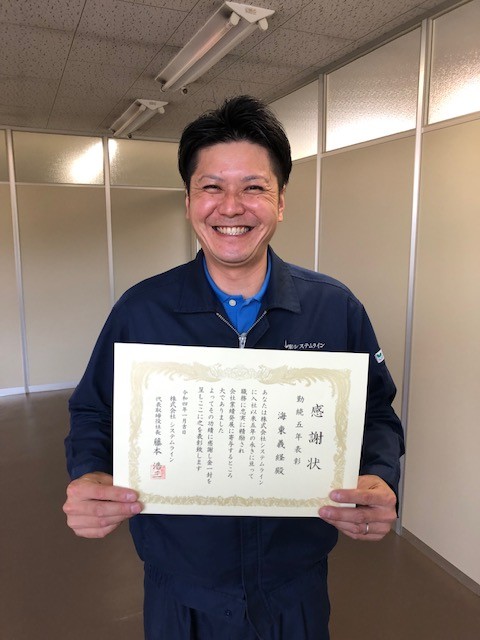 ㈱システムライン
感謝状
勤続五年表彰
海東義経殿
あなたは株式会社システムライン
に入社以来五年の永きに亘って
職務に忠実に精励され
会社業績発展に寄与するところ
大でありました
よってその功績に感謝し金一封を
呈しここに之を表彰致します
令和四年一月吉日
株式会社 システムライン
代表取締役社長 藤本